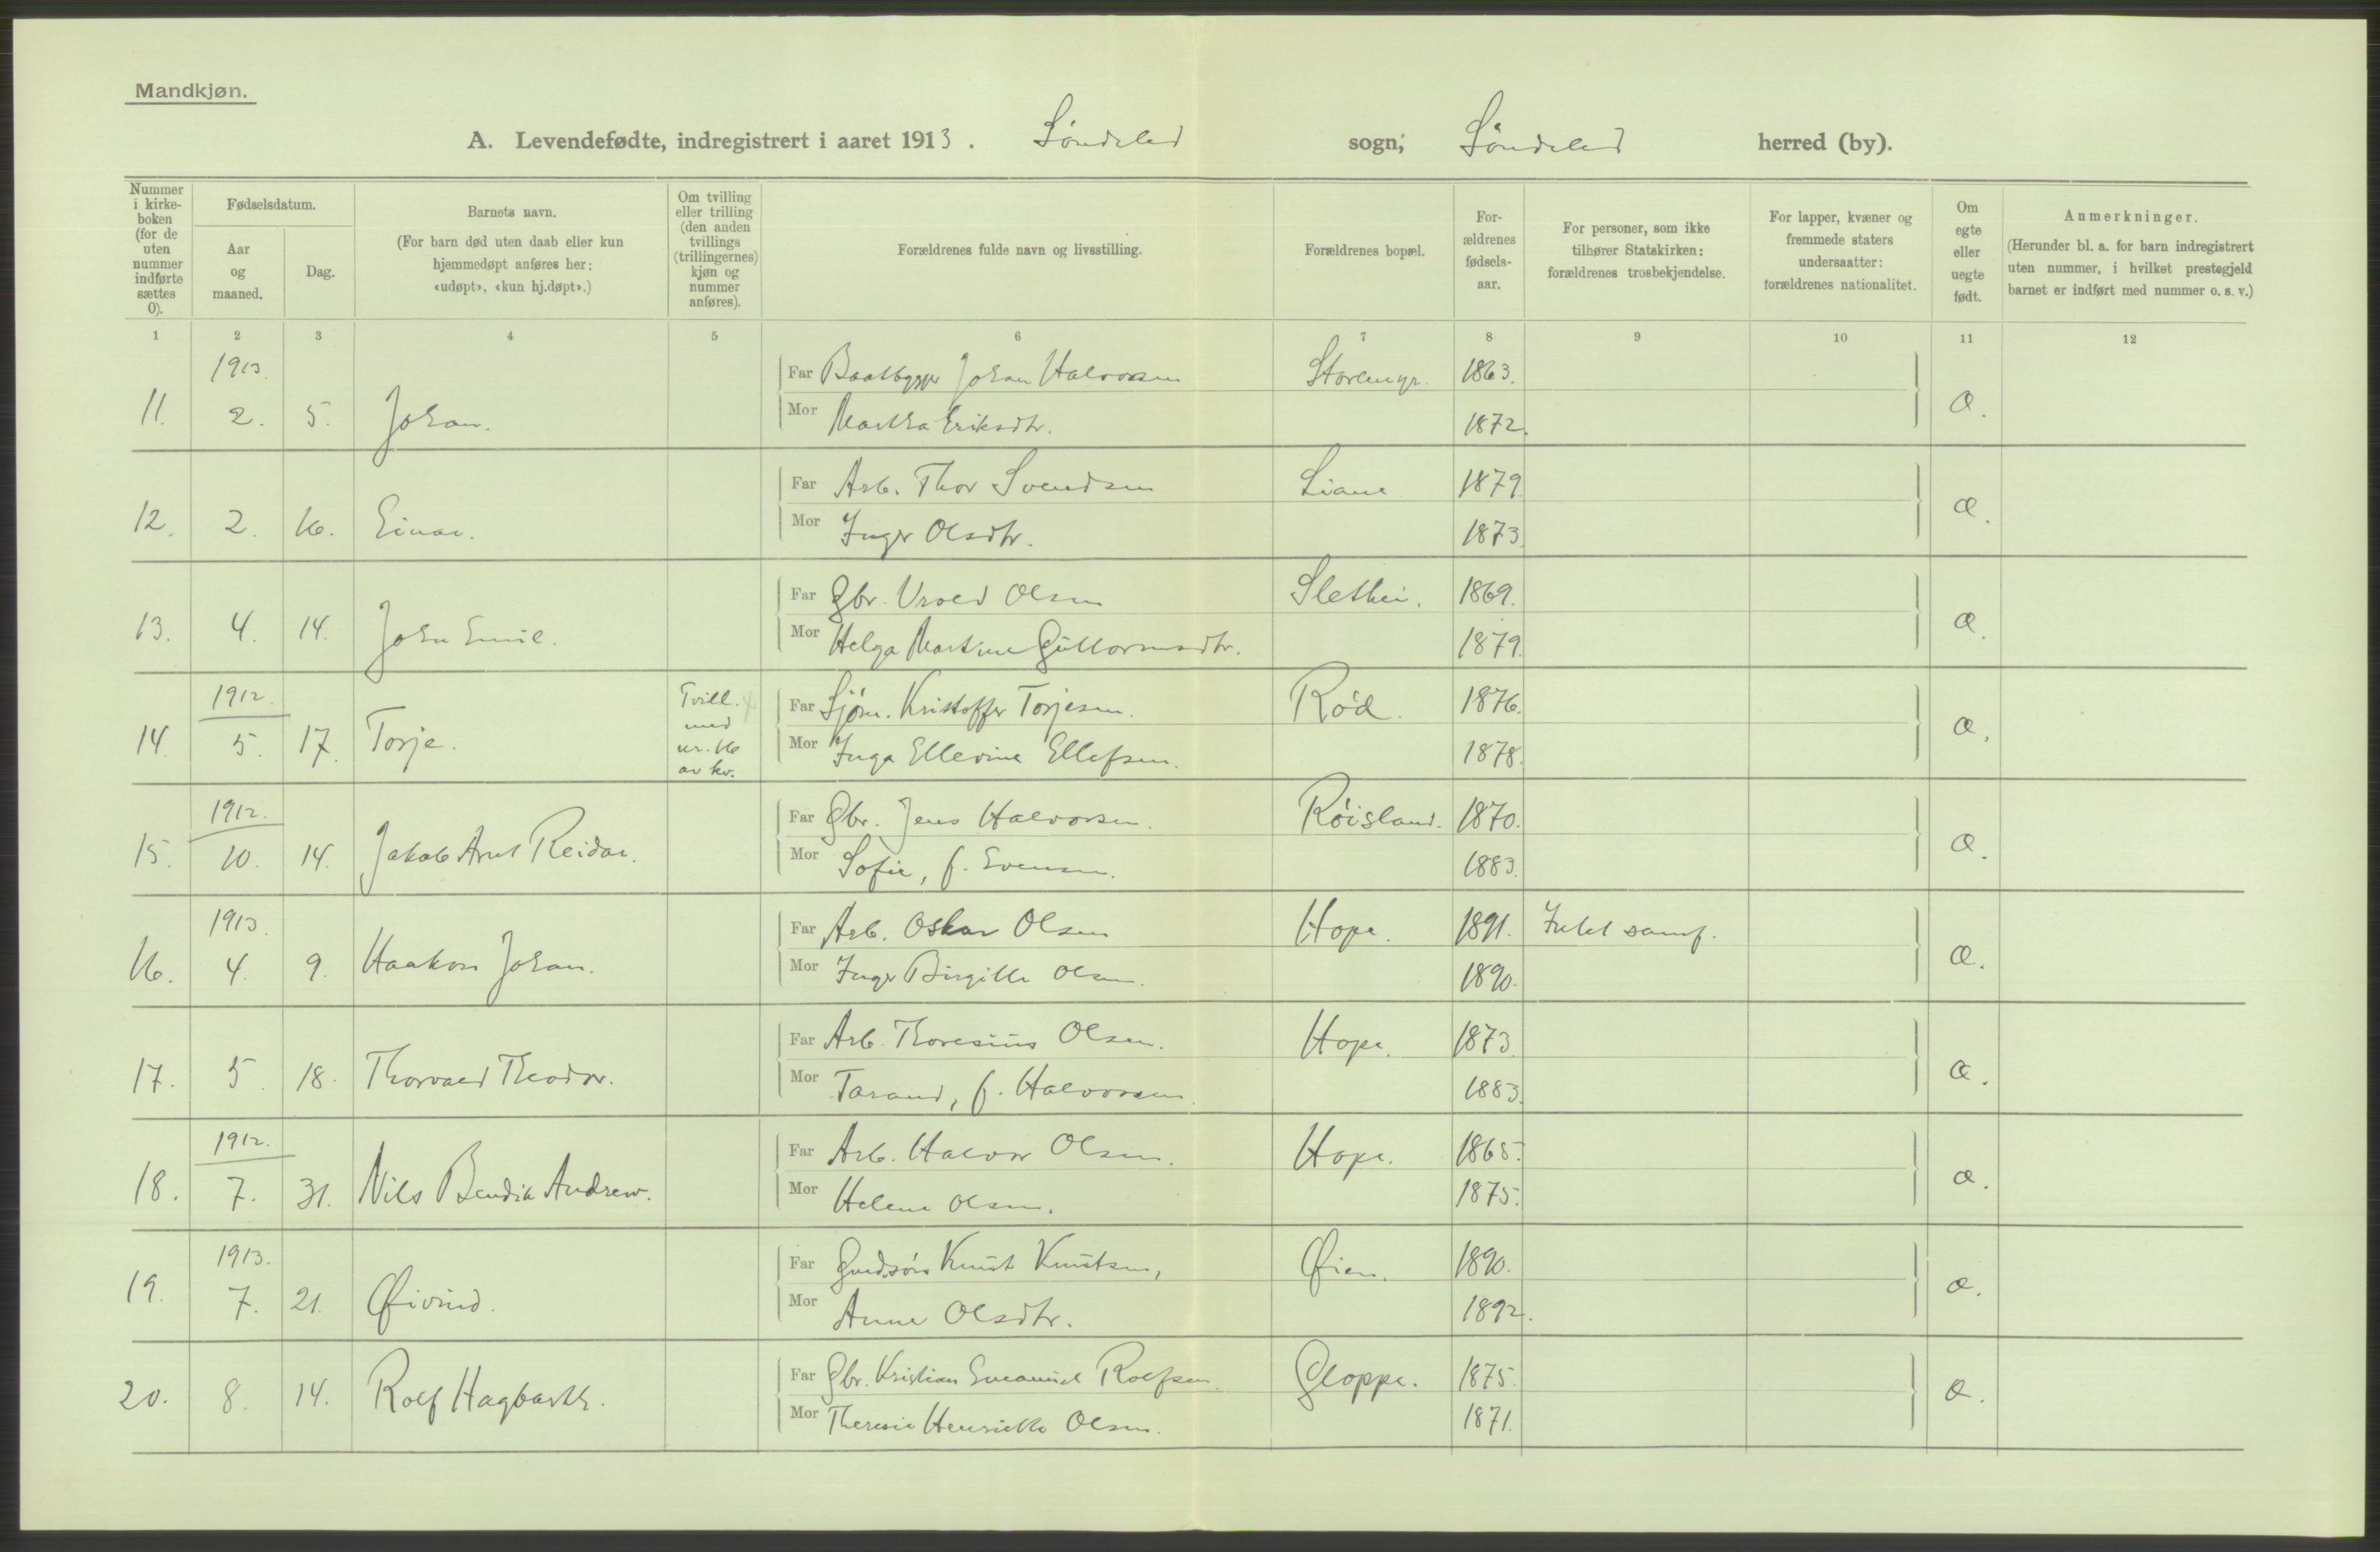 Mandkjøn.
A. Levendefødte, indregistrert i aaret 1913. Søndeled sogn; Søndeled herred (by).
Nummer i kirke-boken (for de uten nummer indførte sættes 0).
Fødselsdatum.
Aar og maaned.
Dag.
Barnets navn.
(For barn død uten daab eller kun hjemmedøpt anføres her: «udøpt», «kun hj.døpt».)
Om tvilling eller trilling (den anden tvillings (trillingernes) kjøn og nummer anføres).
Forældrenes fulde navn og livsstilling.
Forældrenes bopæl.
For-ældrenes fødsels-aar.
For personer, som ikke tilhører Statskirken: forældrenes trosbekjendelse.
For lapper, kvæner og fremmede staters undersaatter: forældrenes nationalitet.
Om egte eller uegte født.
Anmerkninger.
(Herunder bl. a. for barn indregistrert uten nummer, i hvilket prestegjeld barnet er indført med nummer o. s. v.)
1 2 3 4 5 6 7 8 9 10 11 12
1913.
11. 2. 5. Johan.
Far Baatbygger Johan Halvorsen Storemyr. 1863.
Mor Martha Eriksdtr. 1872.
æ.
12. 2. 16. Einar.
Far Arb. Thor Svendsen Liane 1879.
Mor Inger Olsdtr. 1873.
æ.
13. 4. 14. John Emil.
Far Gbr. Vrold Olsen Slethei. 1869.
Mor Helga Martine Guttormsdtr. 1879.
æ.
1912.
14. 5. 17. Torje.
Tvill. med nr. 16 av kv.
Far Sjøm. Kristoffer Torjesen. Rød. 1876.
Mor Inga Ellevine Ellefsen. 1878.
æ.
1912.
15. 10. 14. Jakob Arnt Reidar.
Far Gbr. Jens Halvorsen. Røisland. 1870.
Mor Sofie, f. Evensen. 1883.
æ.
1913.
16. 4. 9. Haakon Johan.
Far Arb. Oskar Olsen Hope. 1891. samf.
Mor Inger Birgitte Olsen. 1890.
æ.
17. 5. 18. Thorvald Theodor.
Far Arb. Thoresius Olsen. Hope. 1873.
Mor Tarand, f. Halvorsen. 1883.
æ.
1912.
18. 7. 31. Nils Bendik Andrew.
Far Arb. Halvor Olsen. Hope. 1865.
Mor Helene Olsen. 1875.
æ.
1913.
19. 7. 21. Øivind.
Far Knut Knutsen, Øien. 1890.
Mor Anne Olsdtr. 1892.
æ.
20. 8. 14. Rolf Hagbarth.
Far Gbr. Kristian Emanuel Rolfsen. Gloppe. 1875.
Mor Theresie Henriette Olsen. 1871.
æ.